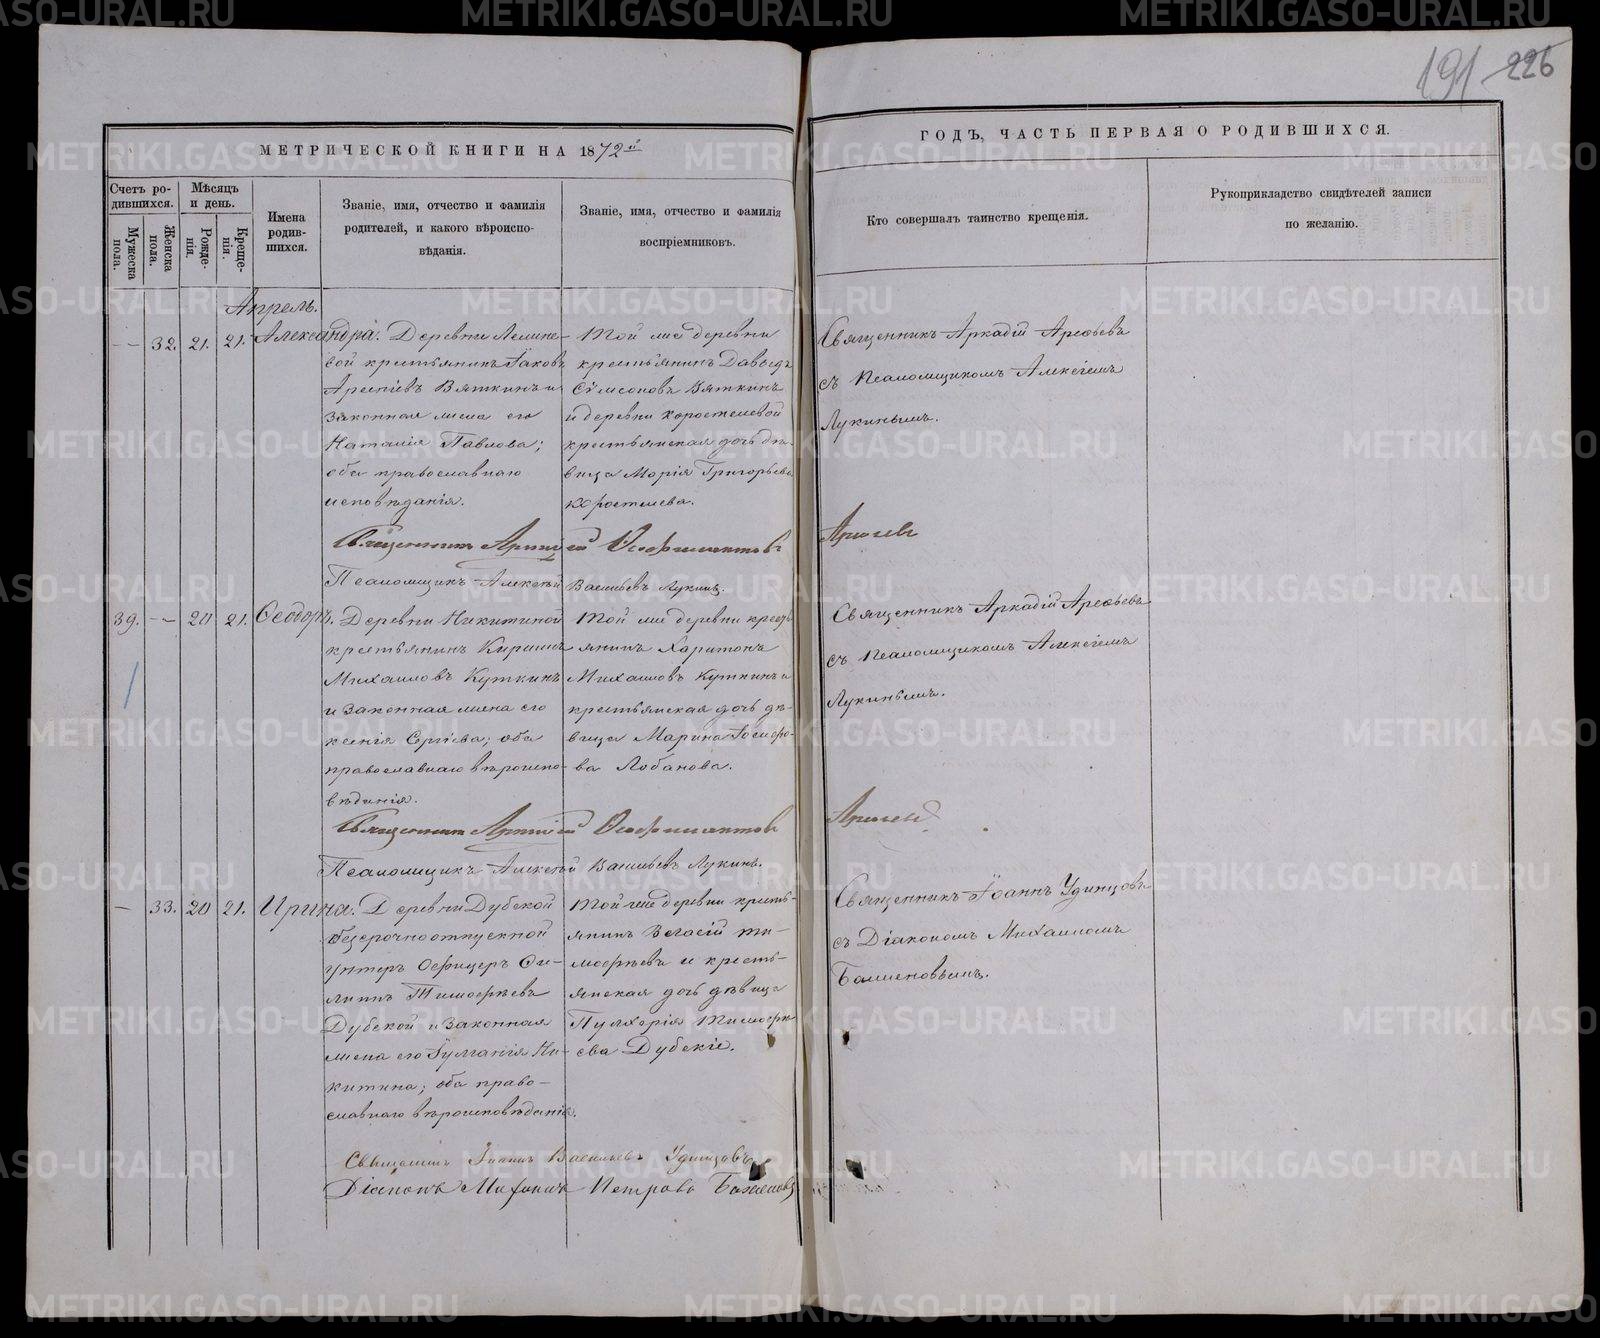 191 226
МЕТРИЧЕСКОЙ КНИГИ НА 1872й
ГОДЪ, ЧАСТЬ ПЕРВАЯ О РОДИВШИХСЯ.
Счетъ ро-
дившихся.
Мужеска
пола.
Женска
пола.
Мѣсяцъ
и день.
Рожде-
нія.
Креще-
нія.
Имена
родив-
шихся.
Званіе, имя, отчество и фамилія
родителей, и какого вѣроиспо-
вѣданія.
Званіе, имя, отчество и фамилія
воспріемниковъ.
Кто совершалъ таинство крещенія.
Рукоприкладство свидѣтелей записи
по желанію.
Апрель.
32. 21. 21. Александра.
Деревни
крестьянинъ Іаковъ
Вяткинъ и
законная жена его
Наталія Павлова;
оба православнаго
исповѣданія.
Той же деревни
крестьянинъ Давыдъ
Сѵмеоновъ Вяткинъ
и деревни Коростелевой
крестьянская дочь дѣ-
вица Марія Григорьева
Коростелева.
Священникъ Аркадій Арефьевъ
съ Псаломщикомъ Алексіемъ
Лукинымъ.
Священникъ
Псаломщикъ Алексѣй Васильевъ Лукинъ.
39. — 20 21. Ѳеодоръ.
Деревни Никитиной
крестьянинъ Кириллъ
Михаиловъ Куткинъ
и законная жена его
Ксенія Сергіева; оба
православнаго вѣроиспо-
вѣданія.
Той же деревни кресть-
янинъ Харитонъ
Михаиловъ Куткинъ и
крестьянская дочь дѣ-
вица Марина
ва Лобанова.
Священникъ Аркадій Арефьевъ
съ Псаломщикомъ Алексіемъ
Лукинымъ.
Священникъ
Псаломщикъ Алексѣй Васильевъ Лукинъ.
— 33. 20 21. Ирина.
Деревни Дубской
безсрочноотпускной
унтеръ Офицеръ Фи-
липпъ Тимофѣевъ
Дубской и законная
жена его Іуліанія Ни-
китина; оба право-
славнаго вѣроисповѣданія.
Той же деревни кресть-
янинъ Власій Ти-
мофѣевъ и кресть-
янская дочь дѣвица
Пулхерія Тимофѣ-
ева Дубскіе.
Священникъ Іоаннъ Удинцовъ
съ Діакономъ Михаиломъ
Баженовымъ.
Священникъ Іоаннъ Васильевъ Удинцовъ
Діаконъ Михаилъ Петровъ Баженовъ
METRIKI.GASO-URAL.RU